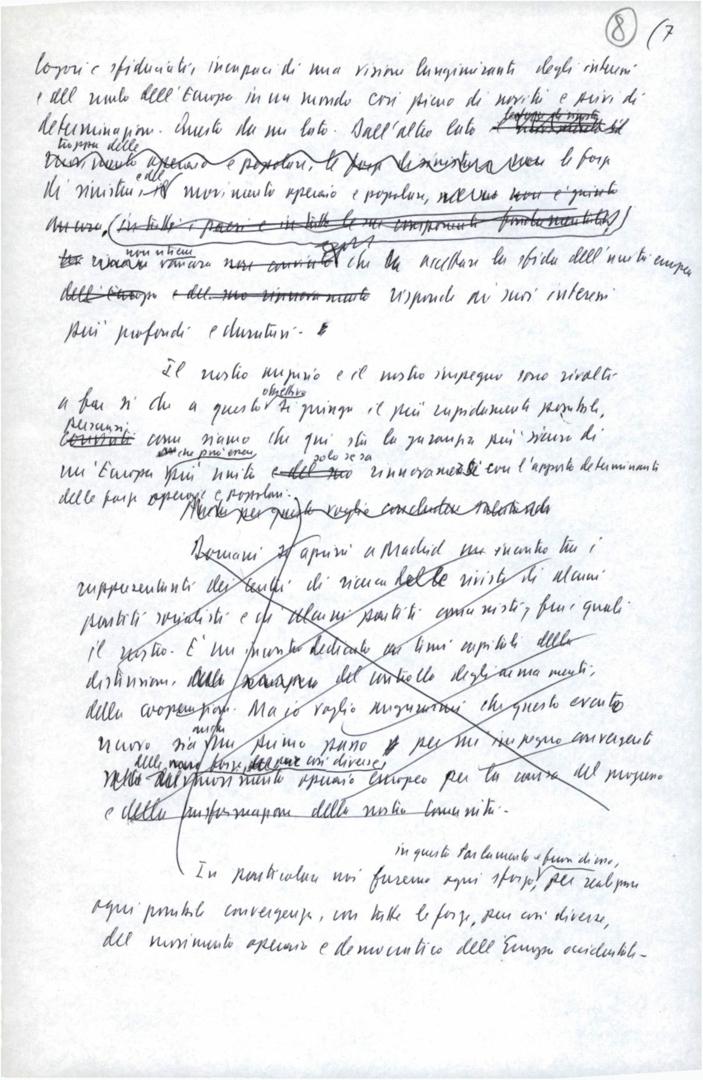 8 (7
logori e sfiduciati, incapaci di una visione lungimirante degli interessi
e del ruolo dell'Europa in un mondo così pieno di novità e privi di
determinazione. Questo da un lato. Dall'altro lato
troppa
movimento operaio e popolare, le forze di sinistra le forze
di sinistra, e del movimento operaio e popolare, non è giunto
ancora, (in tutti i paesi e in tutte le sue componenti fondamentali)
non ritiene ancora che accettare la sfida dell'unità europea
dell'Europa e del suo rinnovamento risponde ai suoi interessi
più profondi e duraturi.
Il nostro augurio e il nostro impegno sono rivolti
a far sì che a questo obiettivo si giunga il più rapidamente possibile,
persuasi
convinti come siamo che qui sta la garanzia più sicura di
che può essere solo se sa
un'Europa più unita e del suo rinnovarsi con l'apporto determinante
delle forze operaie e popolari.
Anche per questo voglio concludere salutando
Domani si aprirà a Madrid un incontro tra i
rappresentanti dei centri di ricerca delle riviste di alcuni
partiti socialisti e di alcuni partiti comunisti, fra i quali
il nostro. È un incontro dedicato ai temi capitali della
distensione, del controllo degli armamenti,
della cooperazione. Ma io voglio augurarmi che questo evento
nuovo sia anche un primo passo per un impegno convergente
delle forze, pur così diverse
del movimento operaio europeo per la causa del progresso
e della trasformazione della nostra Comunità.
in questo Parlamento e fuori di esso,
In particolare noi faremo ogni sforzo, per realizzare
ogni possibile convergenza, con tutte le forze, pur così diverse,
del movimento operaio e democratico dell'Europa occidentale.